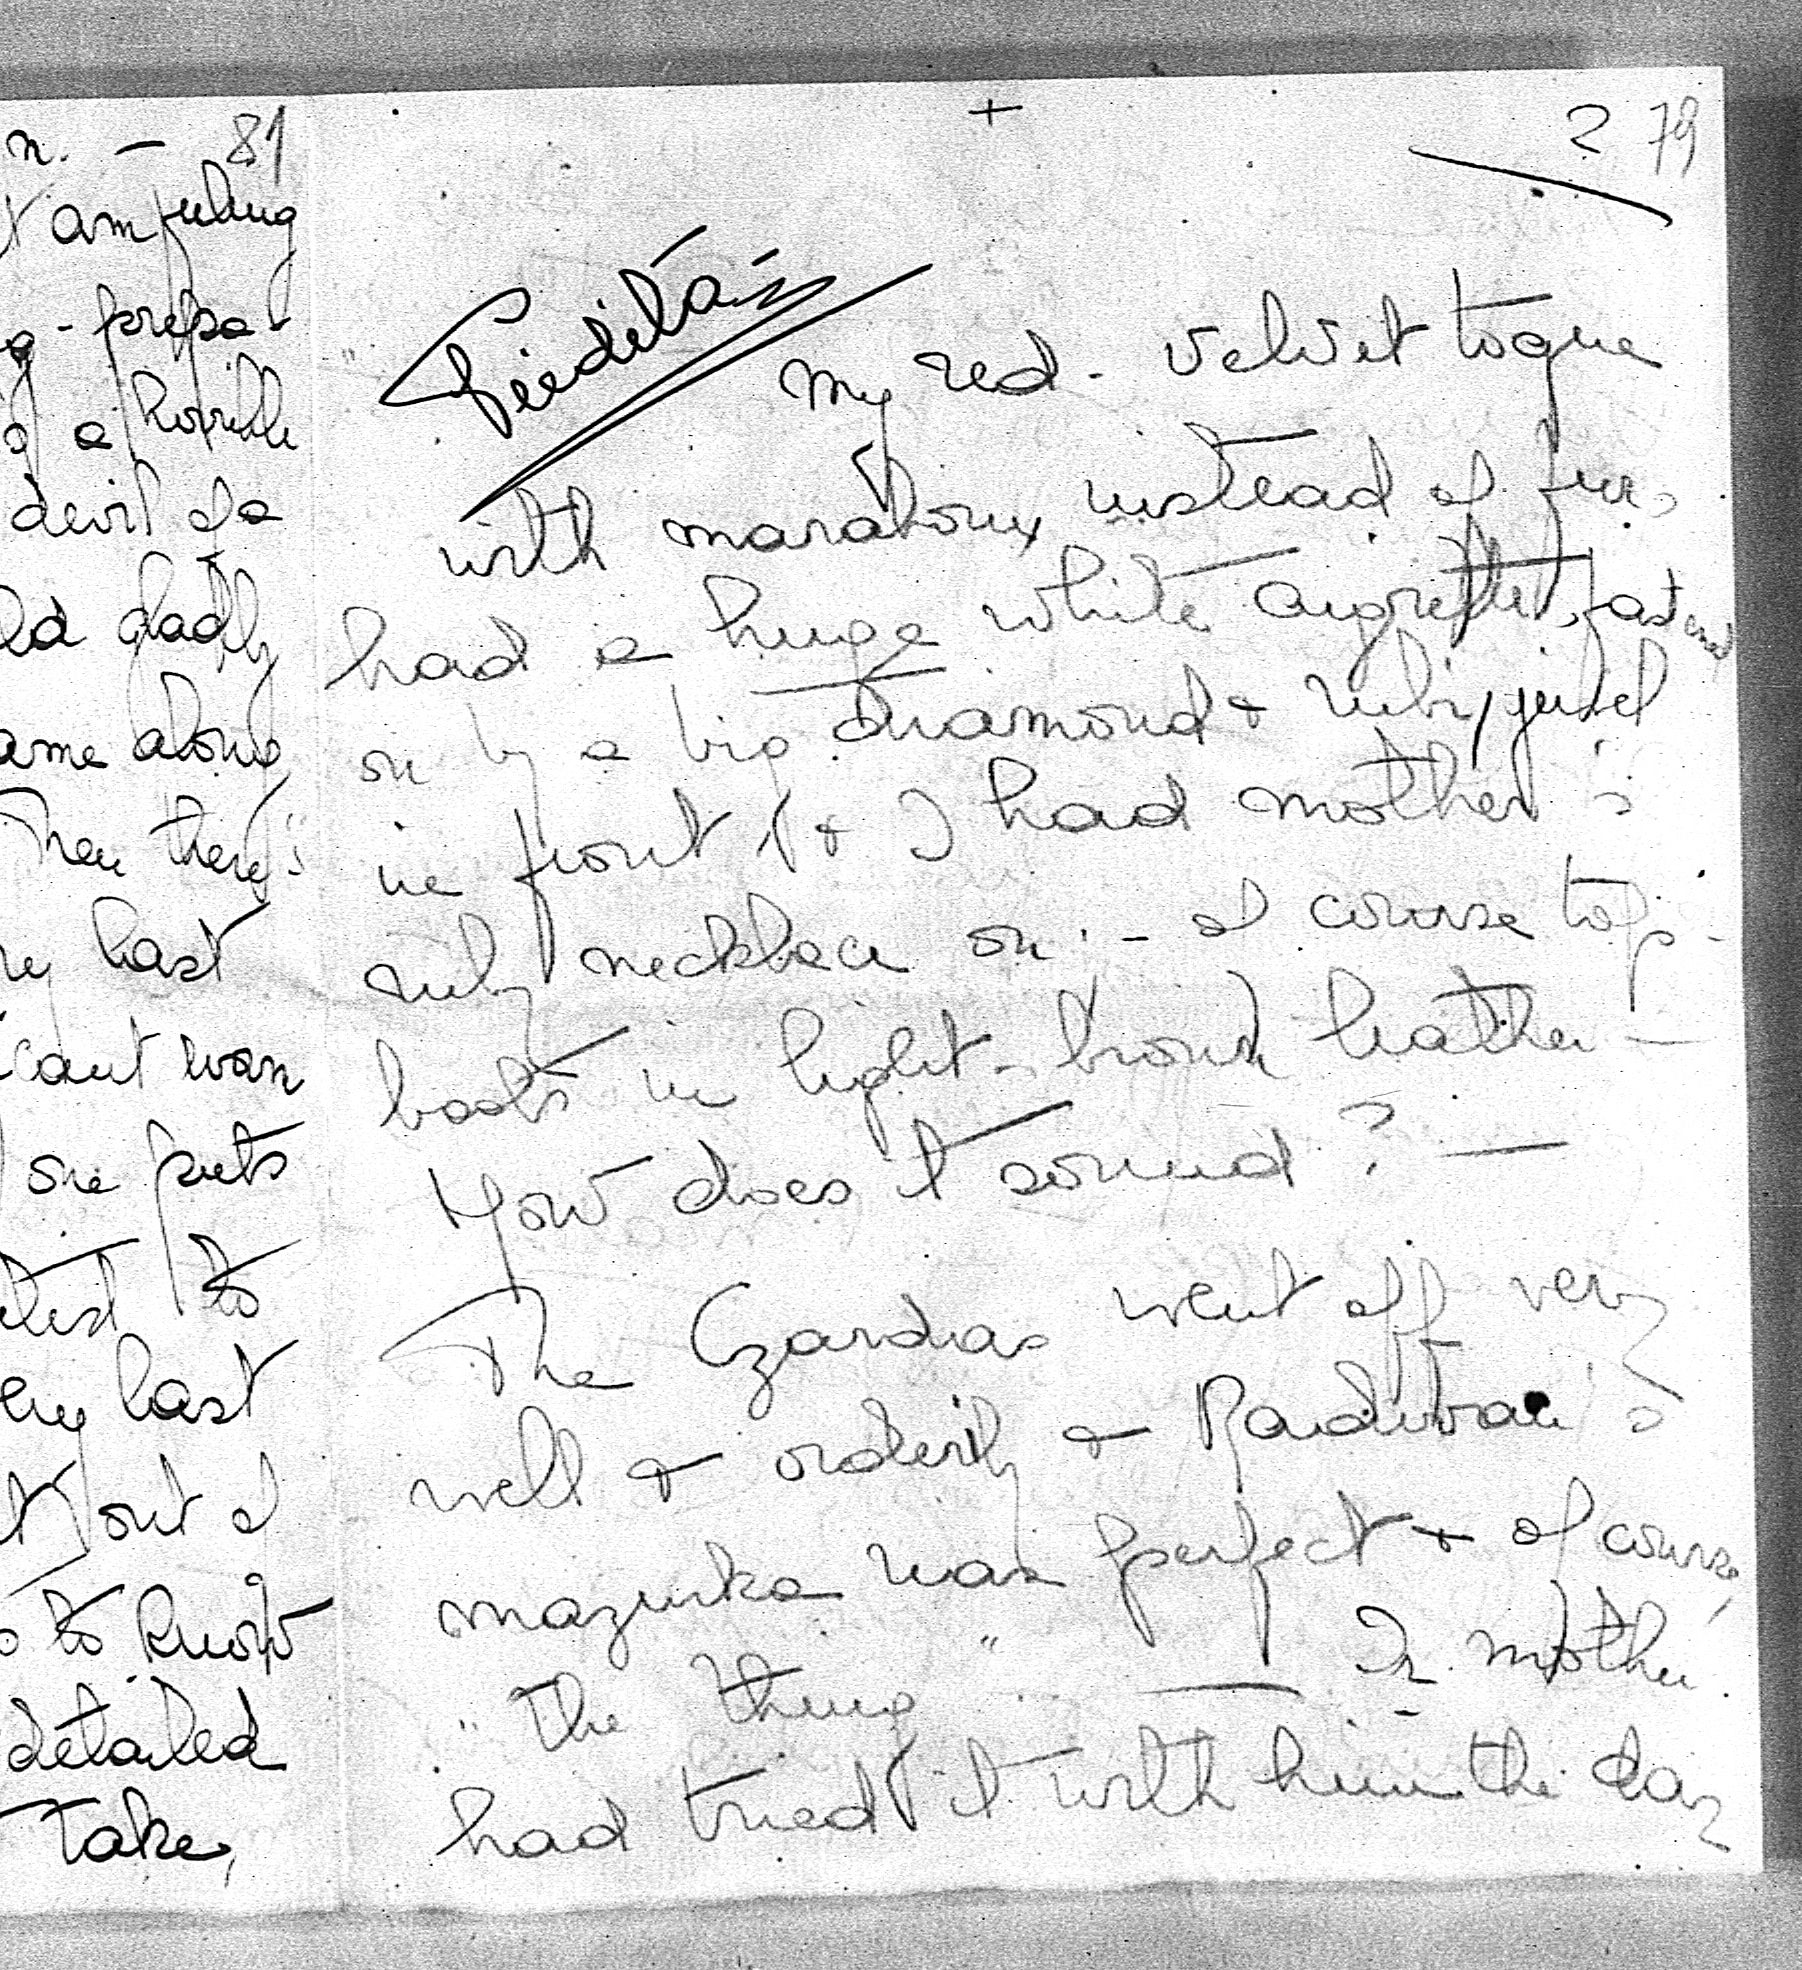 n. — 81
am feeling
g - prepa-
g a horrible
devil of a
ld gladly
ame along,
Then there's
ry last
cant wan
one puts
to
ery last
out of
o to know
detailed
take,
+
2 79
My red - velvet toque
with maraboux instead of fur,
had a huge white aigrette, fastened
on by a big diamond & ruby jewel
in front (& I had mother's
ruby necklace on - of course top-
boots in light-brown leather —
How does it sound? —
The Czardias went off very
well & orderly &
mazurka was perfect & of course,
"the thing" — Gr. mother
had tried it with him the day